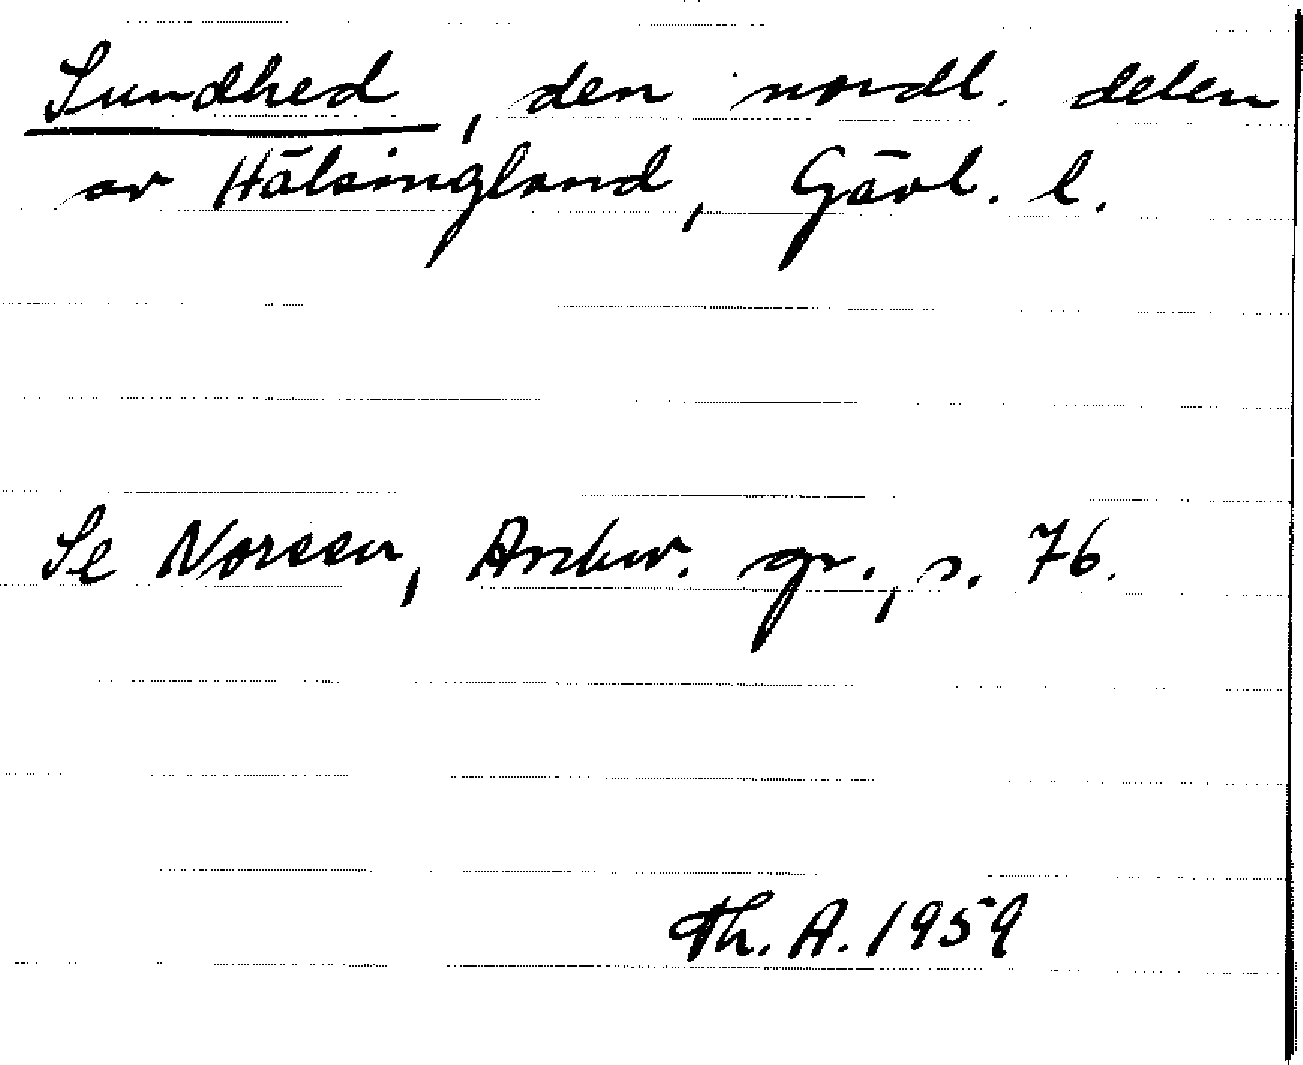 Sundhed, den nordl. delen
av Hälsingland, Gävl. l.
Se Noreen, Aschw. gr., s. 76.
Th. A. 1959